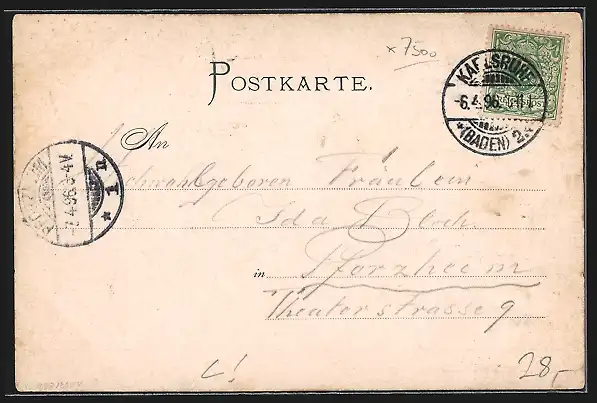 x 7500
POSTKARTE.
KARLSRUHE
-6.4.96.
*(BADEN) 2.
An
Hochwohlgeboren Fräulein
Ida Bloch
in Pforzheim
Theaterstrasse 9
-7.4.96.3-4N
* 1 u
28,-